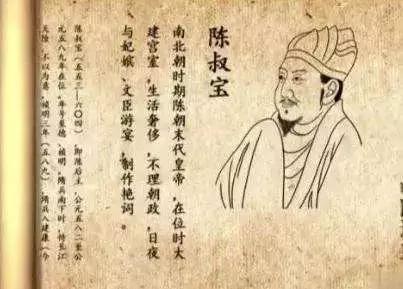 陈叔宝
南北朝时期陈朝末代皇帝，在位时大
建宫室，生活奢侈，不理朝政，日夜
与妃嫔、文臣游宴，制作艳词。
陈叔宝（五五三—六〇四），即陈后主，公元五八二至公
元五八九年在位，年号至德、祯明。隋兵南下时，恃长江
天险，不以为意，祯明三年（五八九），隋兵入建康（今